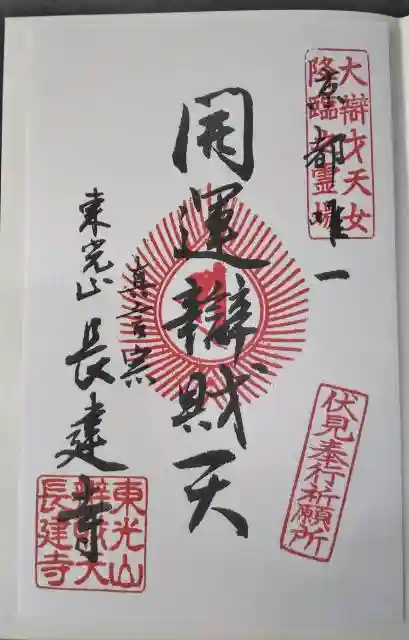 大辯才天女
降臨之霊場
京都唯一
伏見奉行祈願所
開運辯財天
真言宗
東光山
長建寺
東光山
辨財天
長建寺